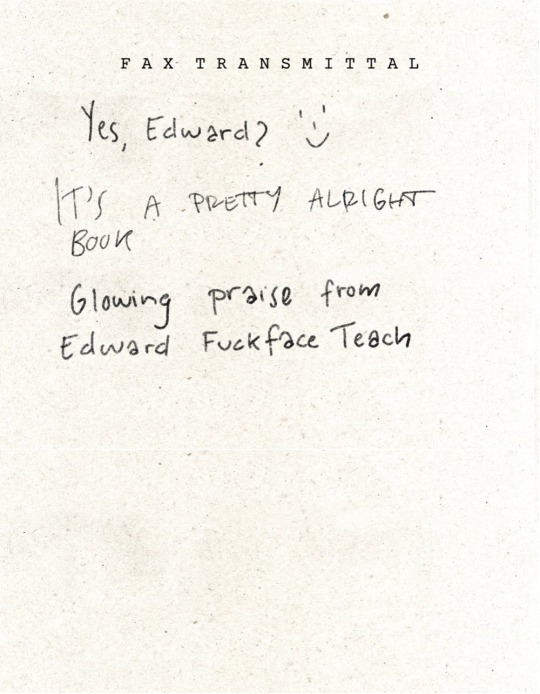 FAX TRANSMITTAL
Yes, Edward? :)
IT'S A PRETTY ALRIGHT
BOOK
Glowing praise from
Edward Fuckface Teach